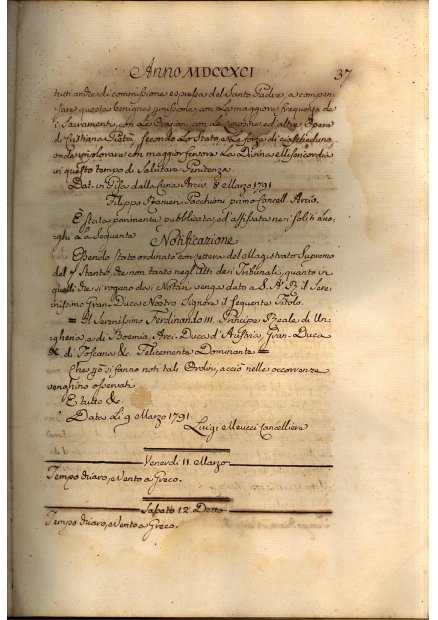 Anno MDCCXCI
37
tutti anche di commissione espressa del Santo Padre, a compen-
sare questa benigna missione con la maggiore frequenza de
i Sacramenti, con le Orazioni, con le ed altre Opere
di Cristiana Pietà, secondo lo stato, e le forze di ciascheduno,
onde implorare con maggior fervore la Divina Misericordia
in questo tempo di Salutare Penitenza.
Dat. in Pisa dalla Curia Arciv. 8 Marzo 1791
Filippo Ranieri Pocchioni primo Cancell. Arciv.
E' stata parimente pubblicata, ed affissata nei soliti luo-
ghi la seguente
Notificazione
Essendo stato ordinato con lettera del Magistrato Supremo
del 7 Stante, che non tanto negli atti dei Tribunali, quanto in
quelli che si rogano da Notari venga dato a S. A. R. il Sere-
nissimo Gran-Duca Nostro Signore il seguente Titolo.
= Il Serenissimo Ferdinando III. Principe Reale di Un-
gheria, e di Boemia, Arci-Duca d'Austria, Gran-Duca
di Toscana &c. Felicemente Dominante =
Che però si fanno noti tali Ordini, acciò nelle occorrenze
venghino osservati
E tutto &c.
Data Li 9 Marzo 1791.
Luigi Meucci Cancelliere
Venerdi 11. Marzo
Tempo chiaro, e Vento a Greco.
Sabato 12. Detto
Tempo chiaro, e Vento a Greco.